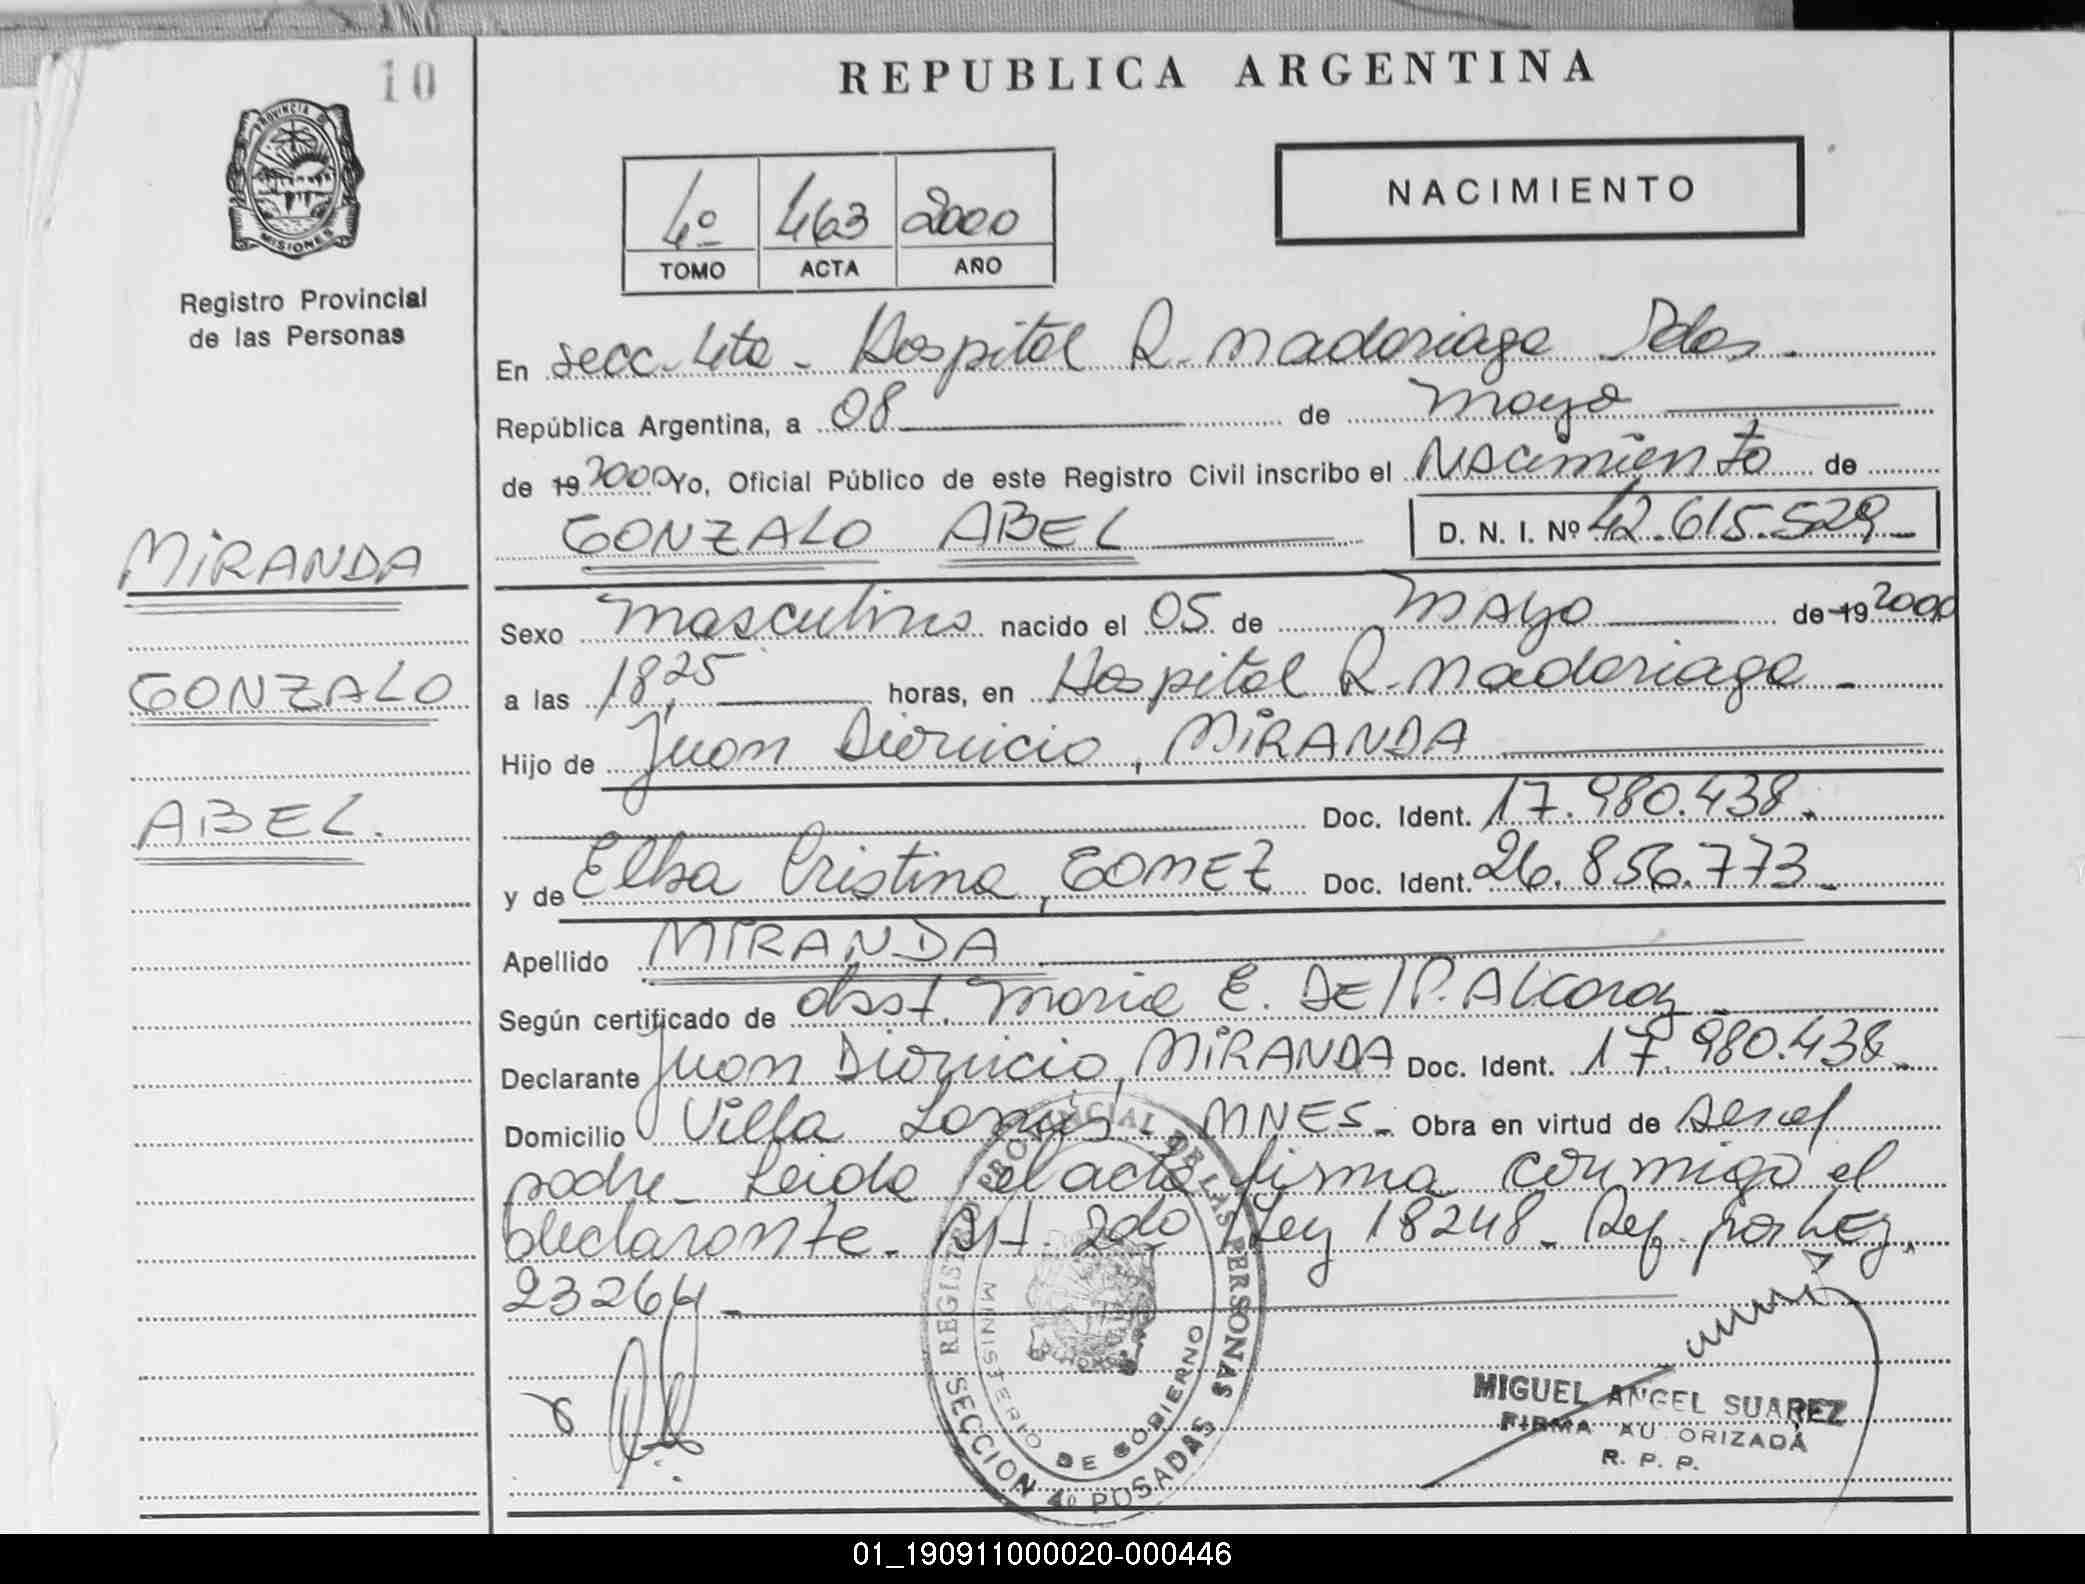 10
REPUBLICA ARGENTINA
PROVINCIA DE
MISIONES
Registro Provincial
de las Personas
NACIMIENTO
4º 463 2000
TOMO ACTA AÑO
En secc. 4ta - Hospital R. Madariaga Pdas.
República Argentina, a 08 de Mayo
de 19 2000 Yo, Oficial Público de este Registro Civil inscribo el Nacimiento de
GONZALO ABEL D. N. I. Nº 42.615.529
MIRANDA
GONZALO
ABEL.
Sexo Masculino nacido el 05 de Mayo de 19 2000
a las 18,25 horas, en Hospital R. Madariaga -
Hijo de Juan Dionicio, MIRANDA
Doc. Ident. 17.980.438.
y de Elba Cristina, GOMEZ Doc. Ident. 26.856.773
Apellido MIRANDA
Según certificado de obst. Maria E. DEl P. Alcaraz
Declarante Juan Dionicio, MIRANDA Doc. Ident. 17.980.438
Domicilio Villa Lanus MNES - Obra en virtud de ser el
padre - Leida el acta firma conmigo el
declarante - Art. 2do Ley 18248 - Ref. por Ley
23264
REGISTRO PROVINCIAL DE LAS PERSONAS
MINISTERIO DE GOBIERNO
SECCION 4º POSADAS
MIGUEL ANGEL SUAREZ
FIRMA AU ORIZADA
R. P. P.
01_190911000020-000446